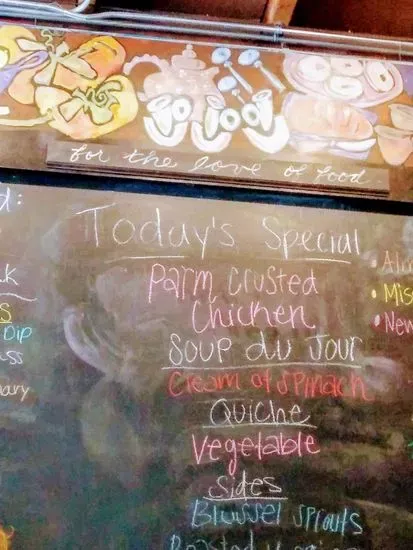 for the love of food
Today's Special
Parm Crusted
Chicken
Soup du Jour
Cream of Spinach
Quiche
Vegetable
Sides
Blussel sprouts
Roasted
Dip
• Mis
• New